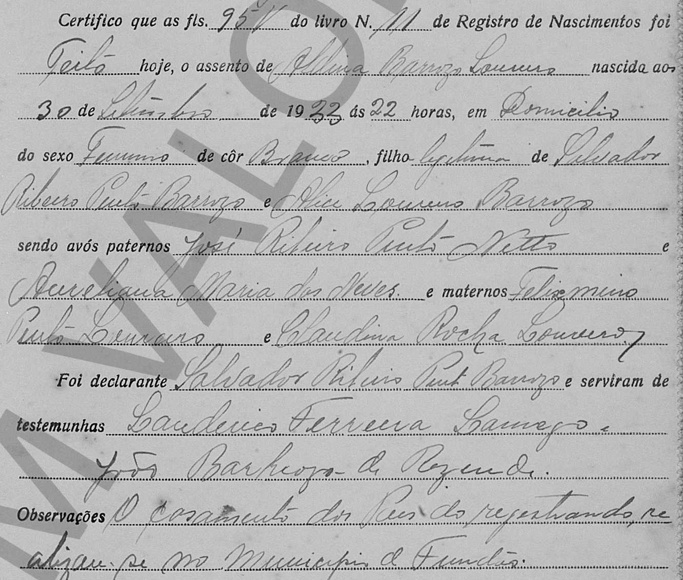 Certifico que as fls. 95 V do livro N. 11 de Registro de Nascimentos foi
Feito hoje, o assento de Barrozo Loureiro nascida aos
30 de Setembro de 1933 ás 22 horas, em Domicilio
do sexo Feminino de côr Branca, filho legitima de Salvador
Ribeiro Pinto Barrozo e Alice Loureiro Barrozo
sendo avós paternos José Ribeiro Pinto Netto e
Aureliana Maria das Neves. e maternos Felismino
Pinto Loureiro e Claudina Rocha Loureiro,
Foi declarante Salvador Ribeiro Pinto Barrozo e serviram de
testemunhas Ferreira Lamego e
João Barbozo de Rezende.
Observações O casamento dos Pais do registrando, re
alizou-se no Municipio d Fundão.
M VALO